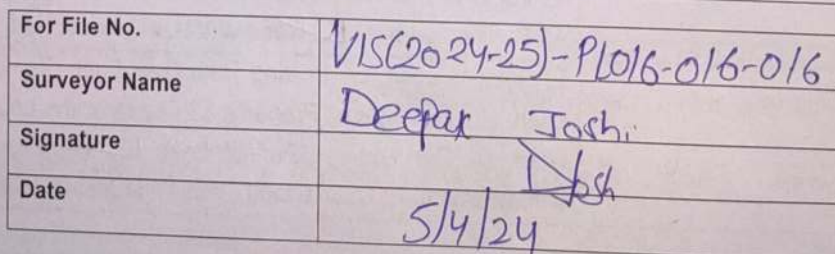 For File No. VIS(2024-25)-PL016-016-016
Surveyor Name Deepak Joshi
Signature DJosh
Date 5/4/24